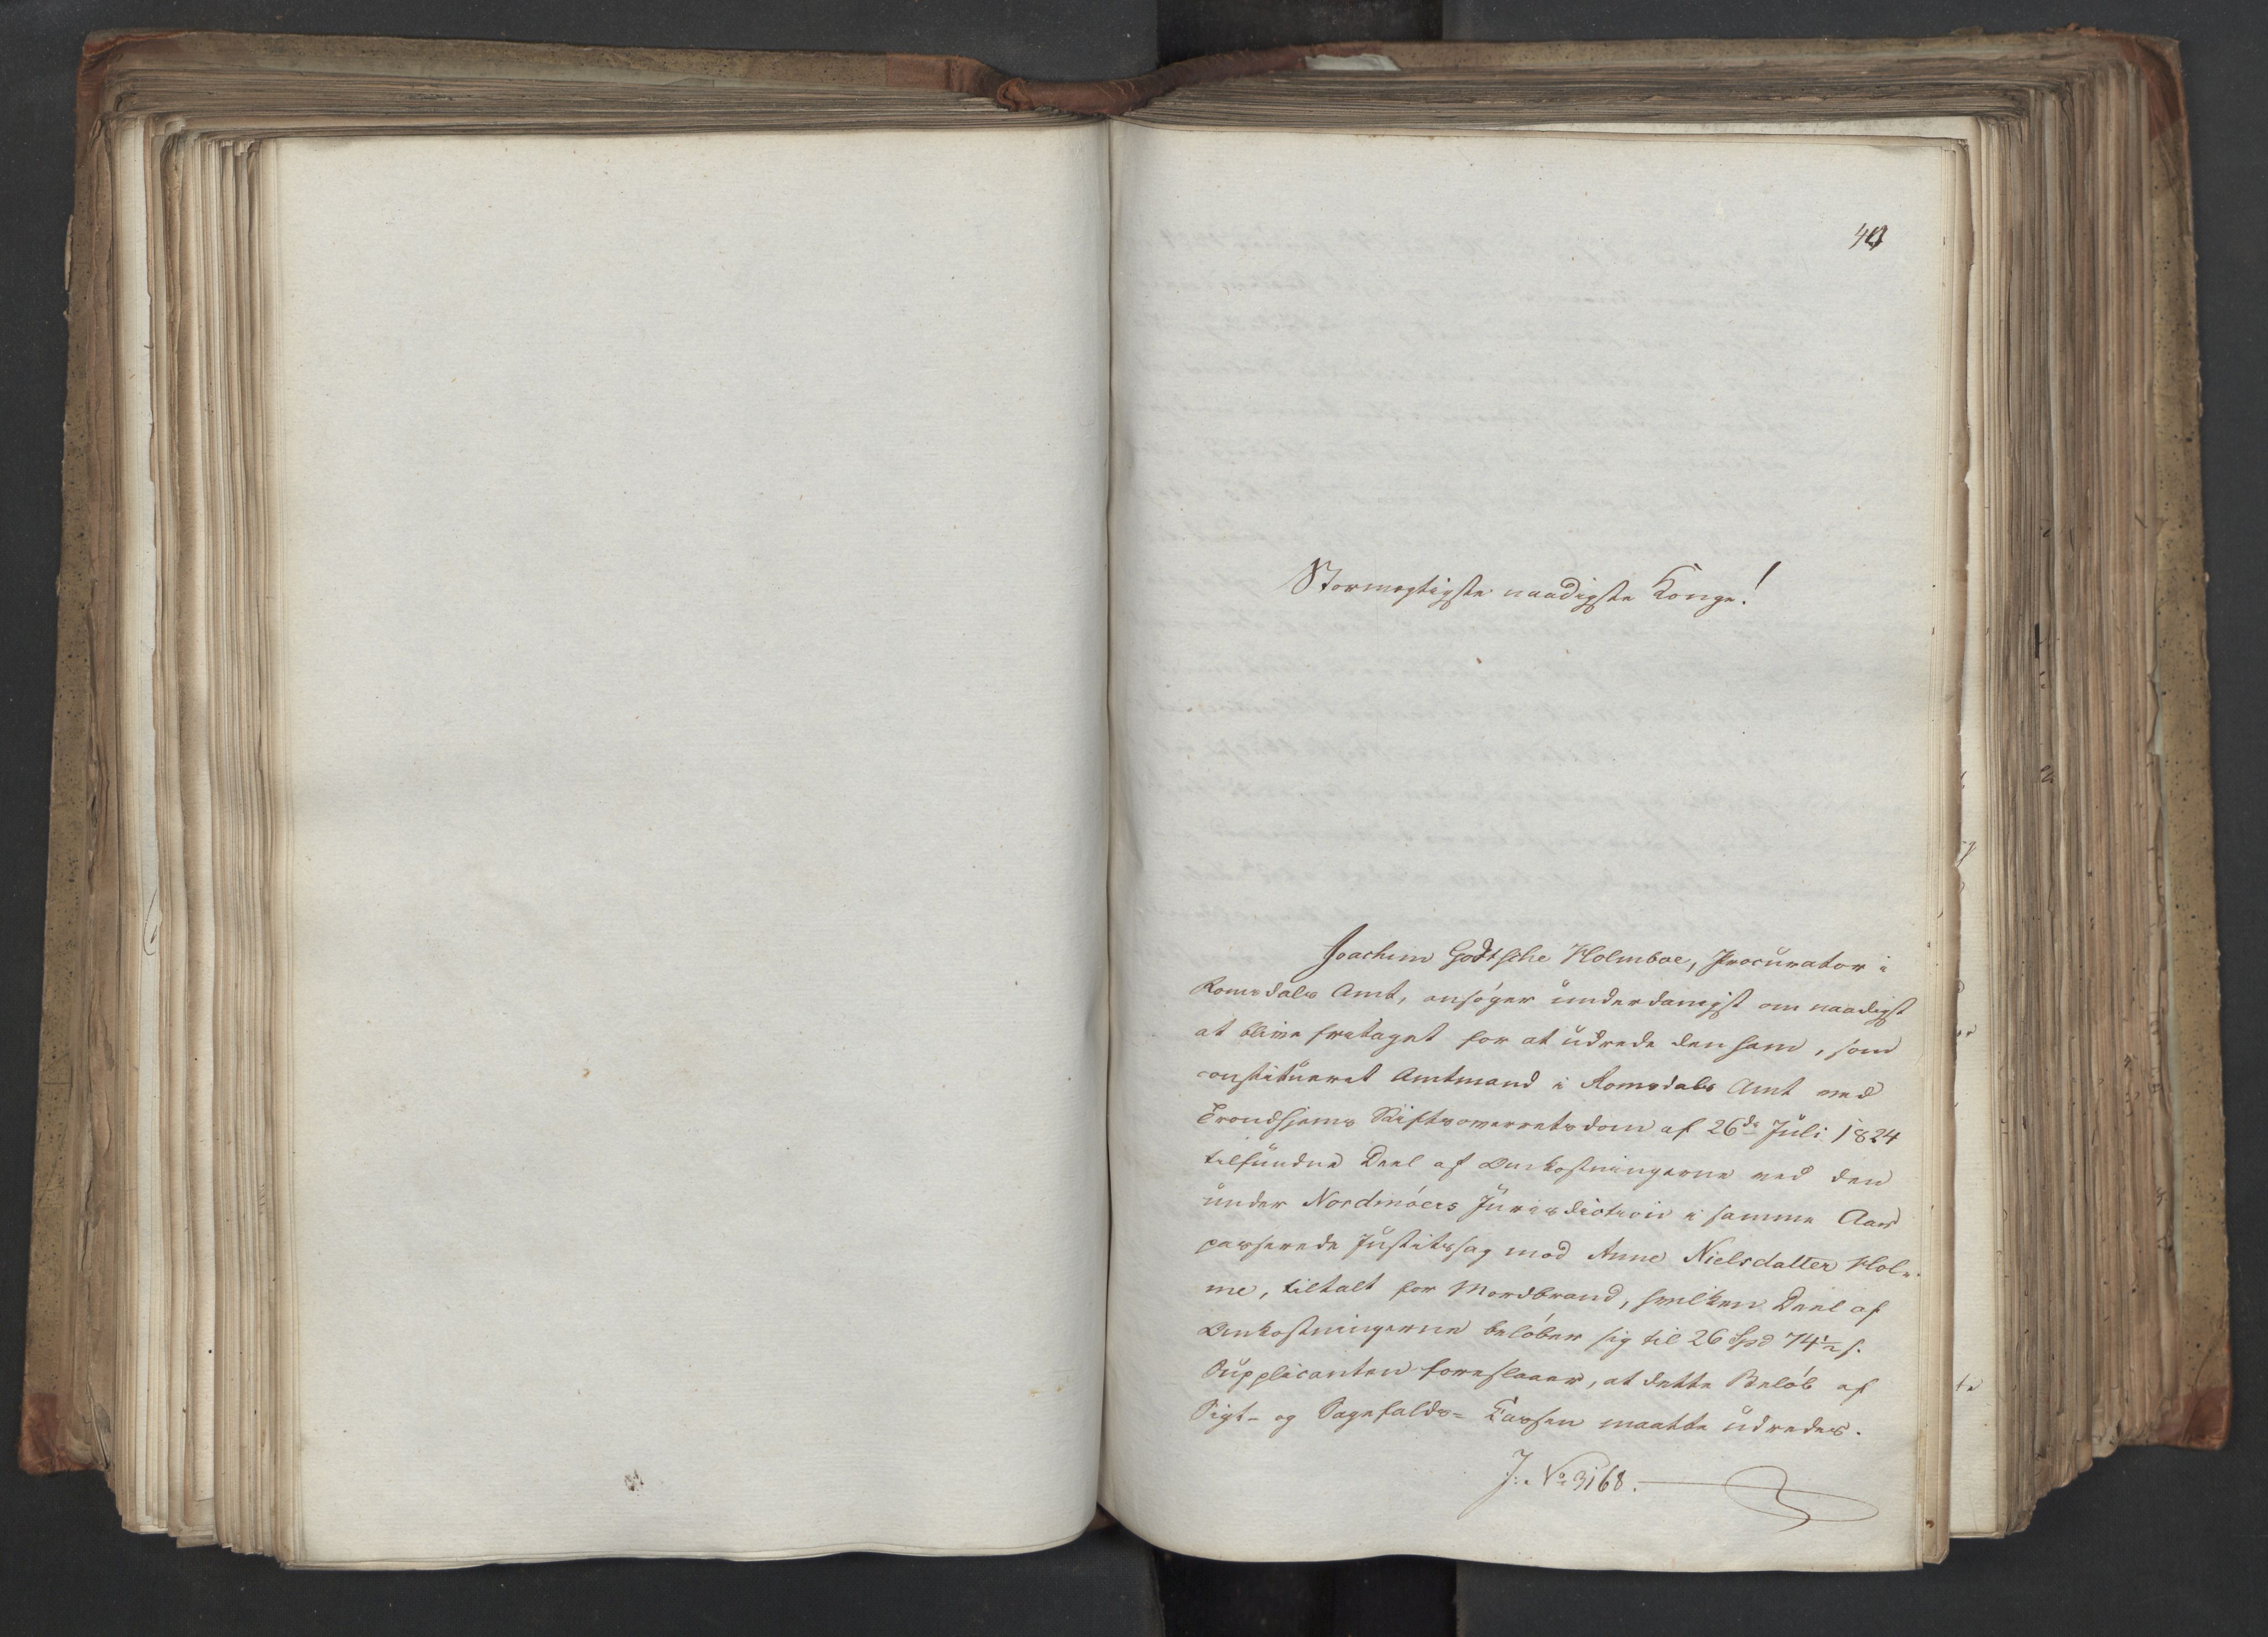 Stormægtigste naadigste Konge!
Joachim Godtsche Holmboe, Procurator i
Romsdals Amt, ansøger underdanigst om naadigst
at blive fritaget for at udrede den ham, som
constitueret Amtmand i Romsdals Amt ved
Trondhjems Stiftsoverretsdom af 26de Juli 1824
tilfundne Deel af Omkostningerne ved den
under Nordmöers Jurisdiction i samme Aar
passerede Justitssag mod Anne Nielsdatter Hol-
me, tiltalt for Mordbrand, hvilken Deel af
Omkostningerne beløber sig til 26 Spd 74½ s.
Supplicanten foreslaaer, at dette Beløb af
Sigt- og Sagefalds- Cassen maatte udredes.
J: No 3168.